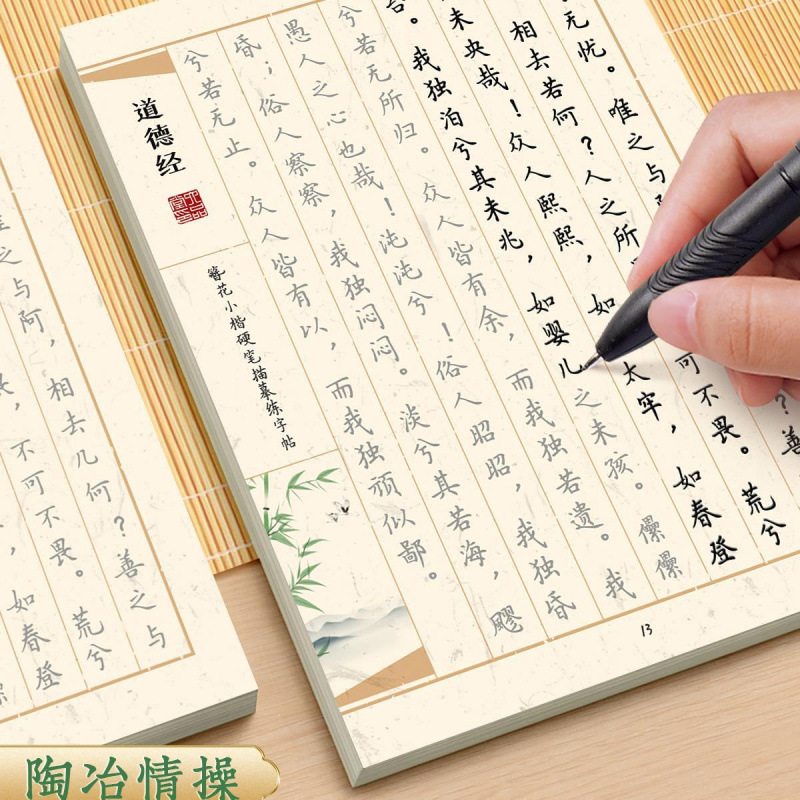 无忧。唯之与
？善
相去若何？人之所
可不畏。荒兮
未央哉！众人熙熙，如
太牢，如春登
台。我独泊兮其未兆，如婴儿之未孩。儽儽
兮若无所归。众人皆有余，而我独若遗。我
愚人之心也哉！沌沌兮！俗人昭昭，我独昏
昏；俗人察察，我独闷闷。淡兮其若海，飂
兮若无止。众人皆有以，而我独顽似鄙。
道德经
簪花小楷硬笔描摹练字帖
13
之与阿，相去几何？善之与
畏，不可不畏。荒兮
，如春登
陶冶情操